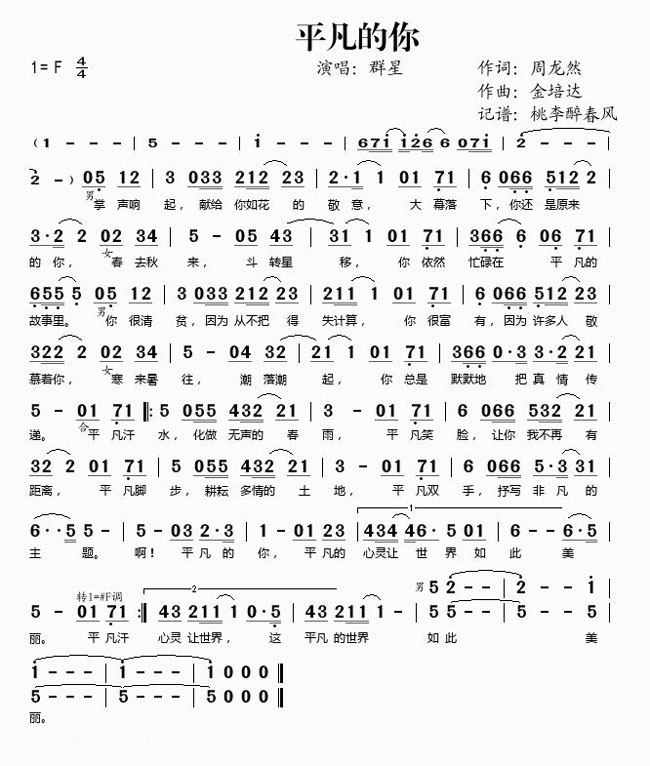 平凡的你
1= F 4/4 演唱：群星 作词：周龙然
作曲：金培达
记谱：桃李醉春风
（1 - - - | 5 - - - | i - - - | 671 126 6 071 | 2 - - -
2 - ）05 12 | 3 033 212 23 | 2·1 1 01 71 | 6 066 512 2
男掌声响 起，献给 你如花 的 敬 意， 大 幕落 下，你还 是原来
3·2 2 02 34 | 5 - 05 43 | 31 1 01 71 | 366 6 06 71
的 你， 女春 去秋 来， 斗 转星 移， 你 依然 忙碌在 平 凡的
655 5 05 12 | 3 033 212 23 | 211 1 01 71 | 6 066 512 23
故事里。 男你 很清 贫，因为 从不把 得 失计算， 你 很富 有，因为 许多人 敬
322 2 02 34 | 5 - 04 32 | 21 1 01 71 | 366 0·3 3·2 21
慕着你， 女寒 来暑 往， 潮 落潮 起， 你 总是 默默地 把 真 情 传
5 - 01 71 ‖: 5 055 432 21 | 3 - 01 71 | 6 066 532 21
递。 合平 凡汗 水，化做 无声的 春 雨， 平 凡笑 脸，让你 我不再 有
32 2 01 71 | 5 055 432 21 | 2 - 01 71 | 6 066 5·3 31
距离， 平 凡脚 步，耕耘 多情的 土 地， 平 凡双 手，抒写 非 凡 的
6··5 5 - | 5 - 03 2·3 | 1 - 01 23 | 434 46· 5 01 | 6 - - 6·5
主 题。 啊！ 平 凡 的 你， 平 凡的 心灵让 世 界 如 此 美
1
转1=#F调 2 男 5 2 - - | 2 - - 1
5 - 01 71 :‖ 43 211 1 0·5 | 43 211 1 5 5 - - | 5 - - 5
丽。 平 凡汗 心灵 让世界， 这 平凡 的世界 如此 美
1 - - - | 1 - - - | 1 0 0 0 ‖
5 - - - | 5 - - - | 5 0 0 0 ‖
丽。